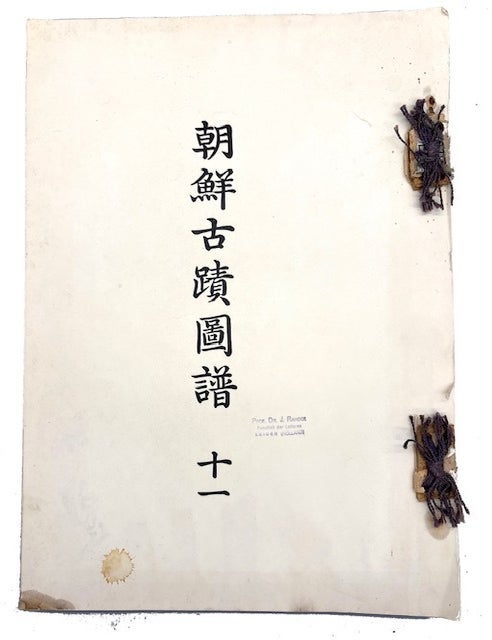 朝鮮古蹟圖譜
十一
Prof. Dr. J. Rahder
Faculteit der Letteren
LEIDEN (HOLLAND)